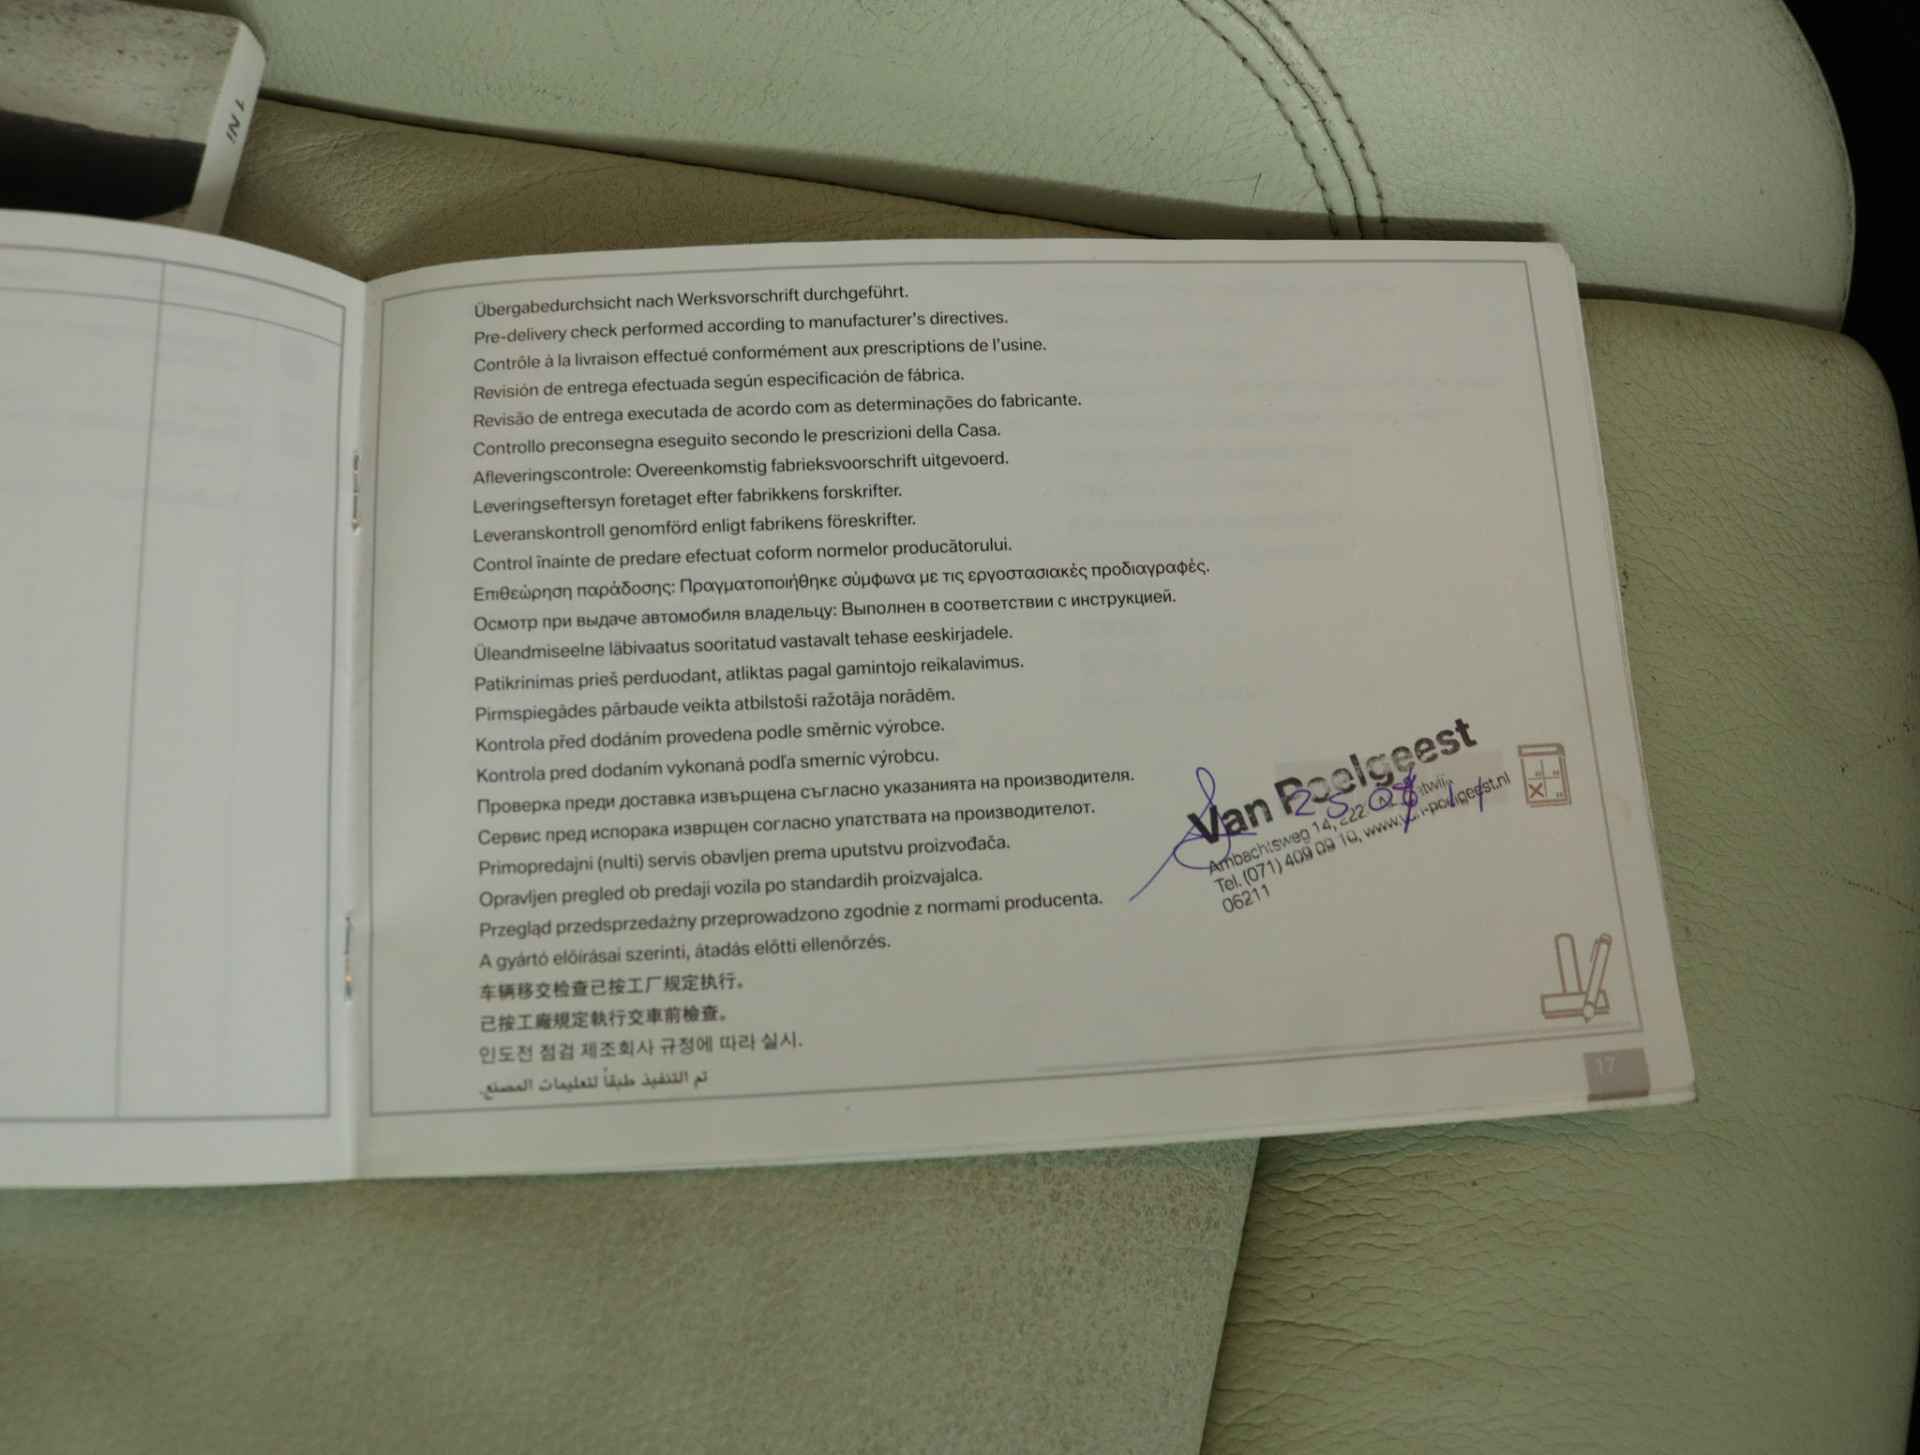 1 NI
Übergabedurchsicht nach Werksvorschrift durchgeführt.
Pre-delivery check performed according to manufacturer's directives.
Contrôle à la livraison effectué conformément aux prescriptions de l'usine.
Revisión de entrega efectuada según especificación de fábrica.
Revisão de entrega executada de acordo com as determinações do fabricante.
Controllo preconsegna eseguito secondo le prescrizioni della Casa.
Afleveringscontrole: Overeenkomstig fabrieksvoorschrift uitgevoerd.
Leveringseftersyn foretaget efter fabrikkens forskrifter.
Leveranskontroll genomförd enligt fabrikens föreskrifter.
Control înainte de predare efectuat coform normelor producătorului.
Επιθεώρηση παράδοσης: Πραγματοποιήθηκε σύμφωνα με τις εργοστασιακές προδιαγραφές.
Осмотр при выдаче автомобиля владельцу: Выполнен в соответствии с инструкцией.
Üleandmiseelne läbivaatus sooritatud vastavalt tehase eeskirjadele.
Patikrinimas prieš perduodant, atliktas pagal gamintojo reikalavimus.
Pirmspiegādes pārbaude veikta atbilstoši ražotāja norādēm.
Kontrola před dodáním provedena podle směrnic výrobce.
Kontrola pred dodaním vykonaná podľa smerníc výrobcu.
Проверка преди доставка извършена съгласно указанията на производителя.
Сервис пред испорака изврщен согласно упатствата на производителот.
Primopredajni (nulti) servis obavljen prema uputstvu proizvođača.
Opravljen pregled ob predaji vozila po standardih proizvajalca.
Przegląd przedsprzedażny przeprowadzono zgodnie z normami producenta.
A gyártó előírásai szerinti, átadás előtti ellenőrzés.
车辆移交检查已按工厂规定执行。
已按工廠規定執行交車前檢查。
인도전 점검 제조회사 규정에 따라 실시.
تم التنفيذ طبقاً لتعليمات المصنع.
Van Poelgeest
Ambachtsweg 14,
Tel. (071) 409 09 10, www.van-poelgeest.nl
06211
17